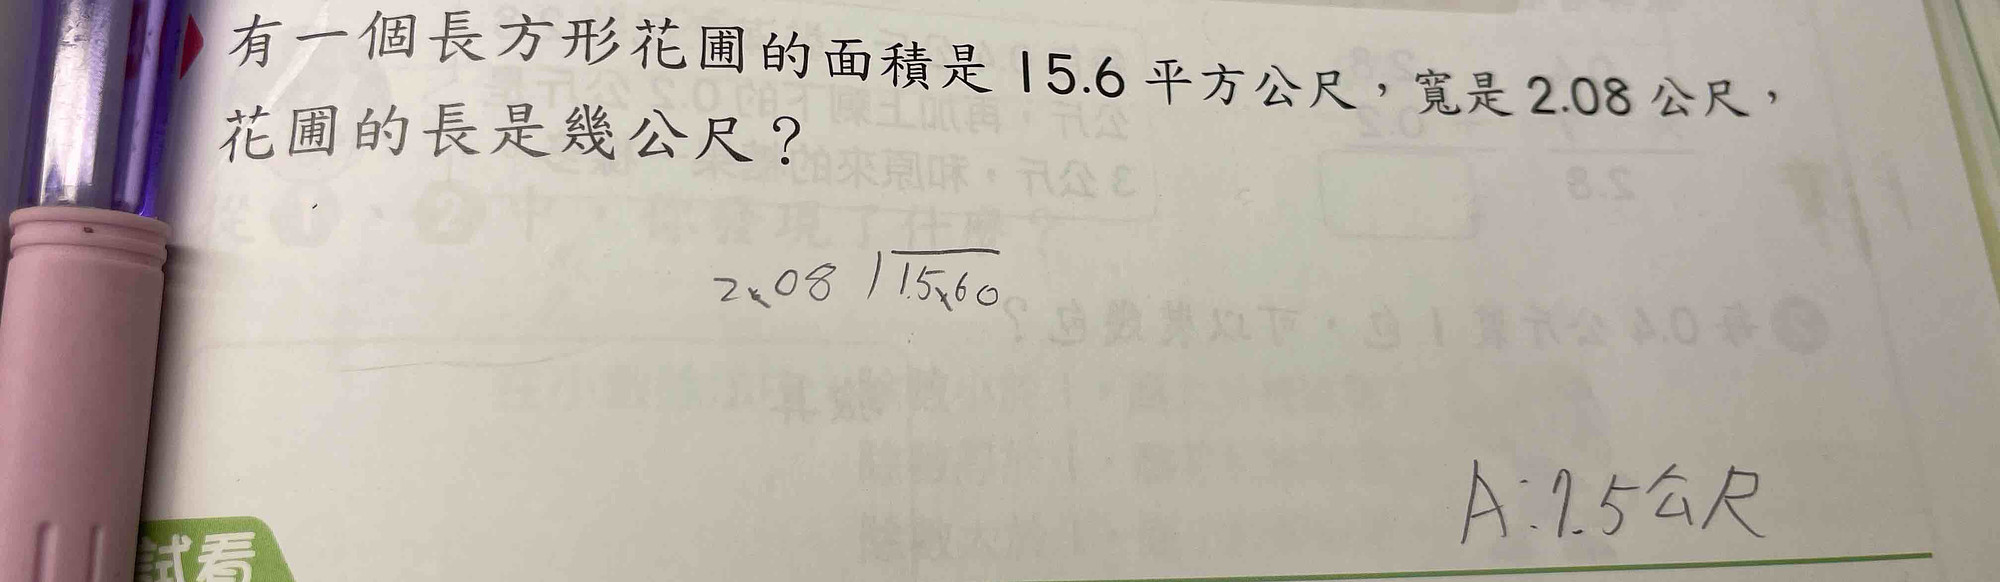 有一個長方形花圃的面積是15.6平方公尺，寬是2.08公尺，
花圃的長是幾公尺？
2.08 15.60
A:7.5公尺
試看